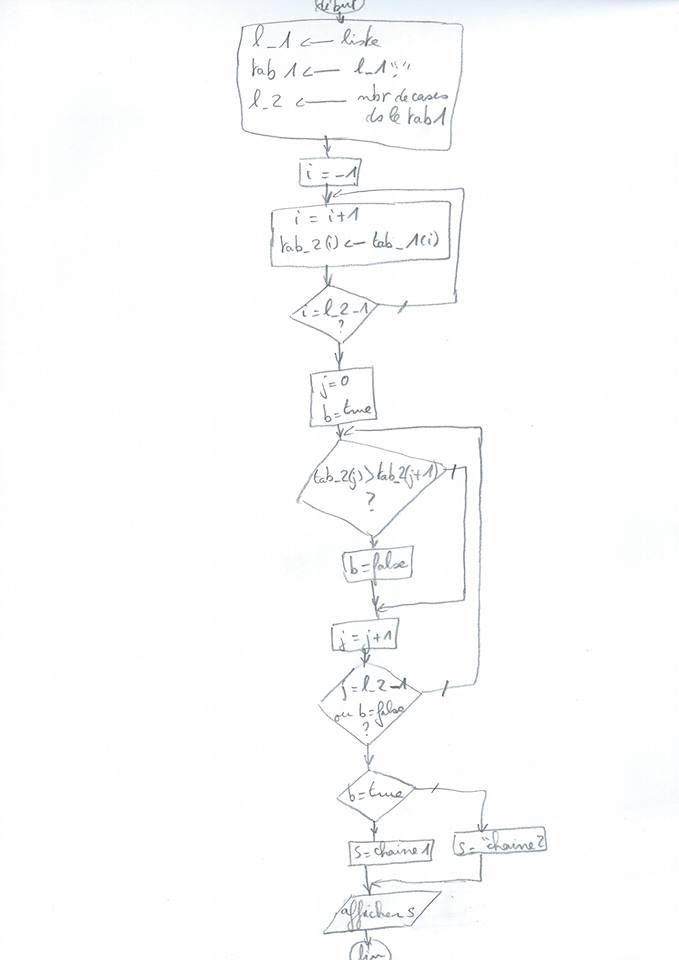 début
l_1 <— liste
tab 1 <— l_1 ";"
l_2 <— nbr de cases
ds le tab 1
i = -1
i = i+1
tab_2(i) <— tab_1(i)
i = l_2-1
?
j = 0
b = true
tab_2(j) > tab_2(j+1)
?
b = false
j = j+1
j = l_2-1
ou b = false
?
b = true
s = chaine 1
s = "chaine 2
afficher s
fin